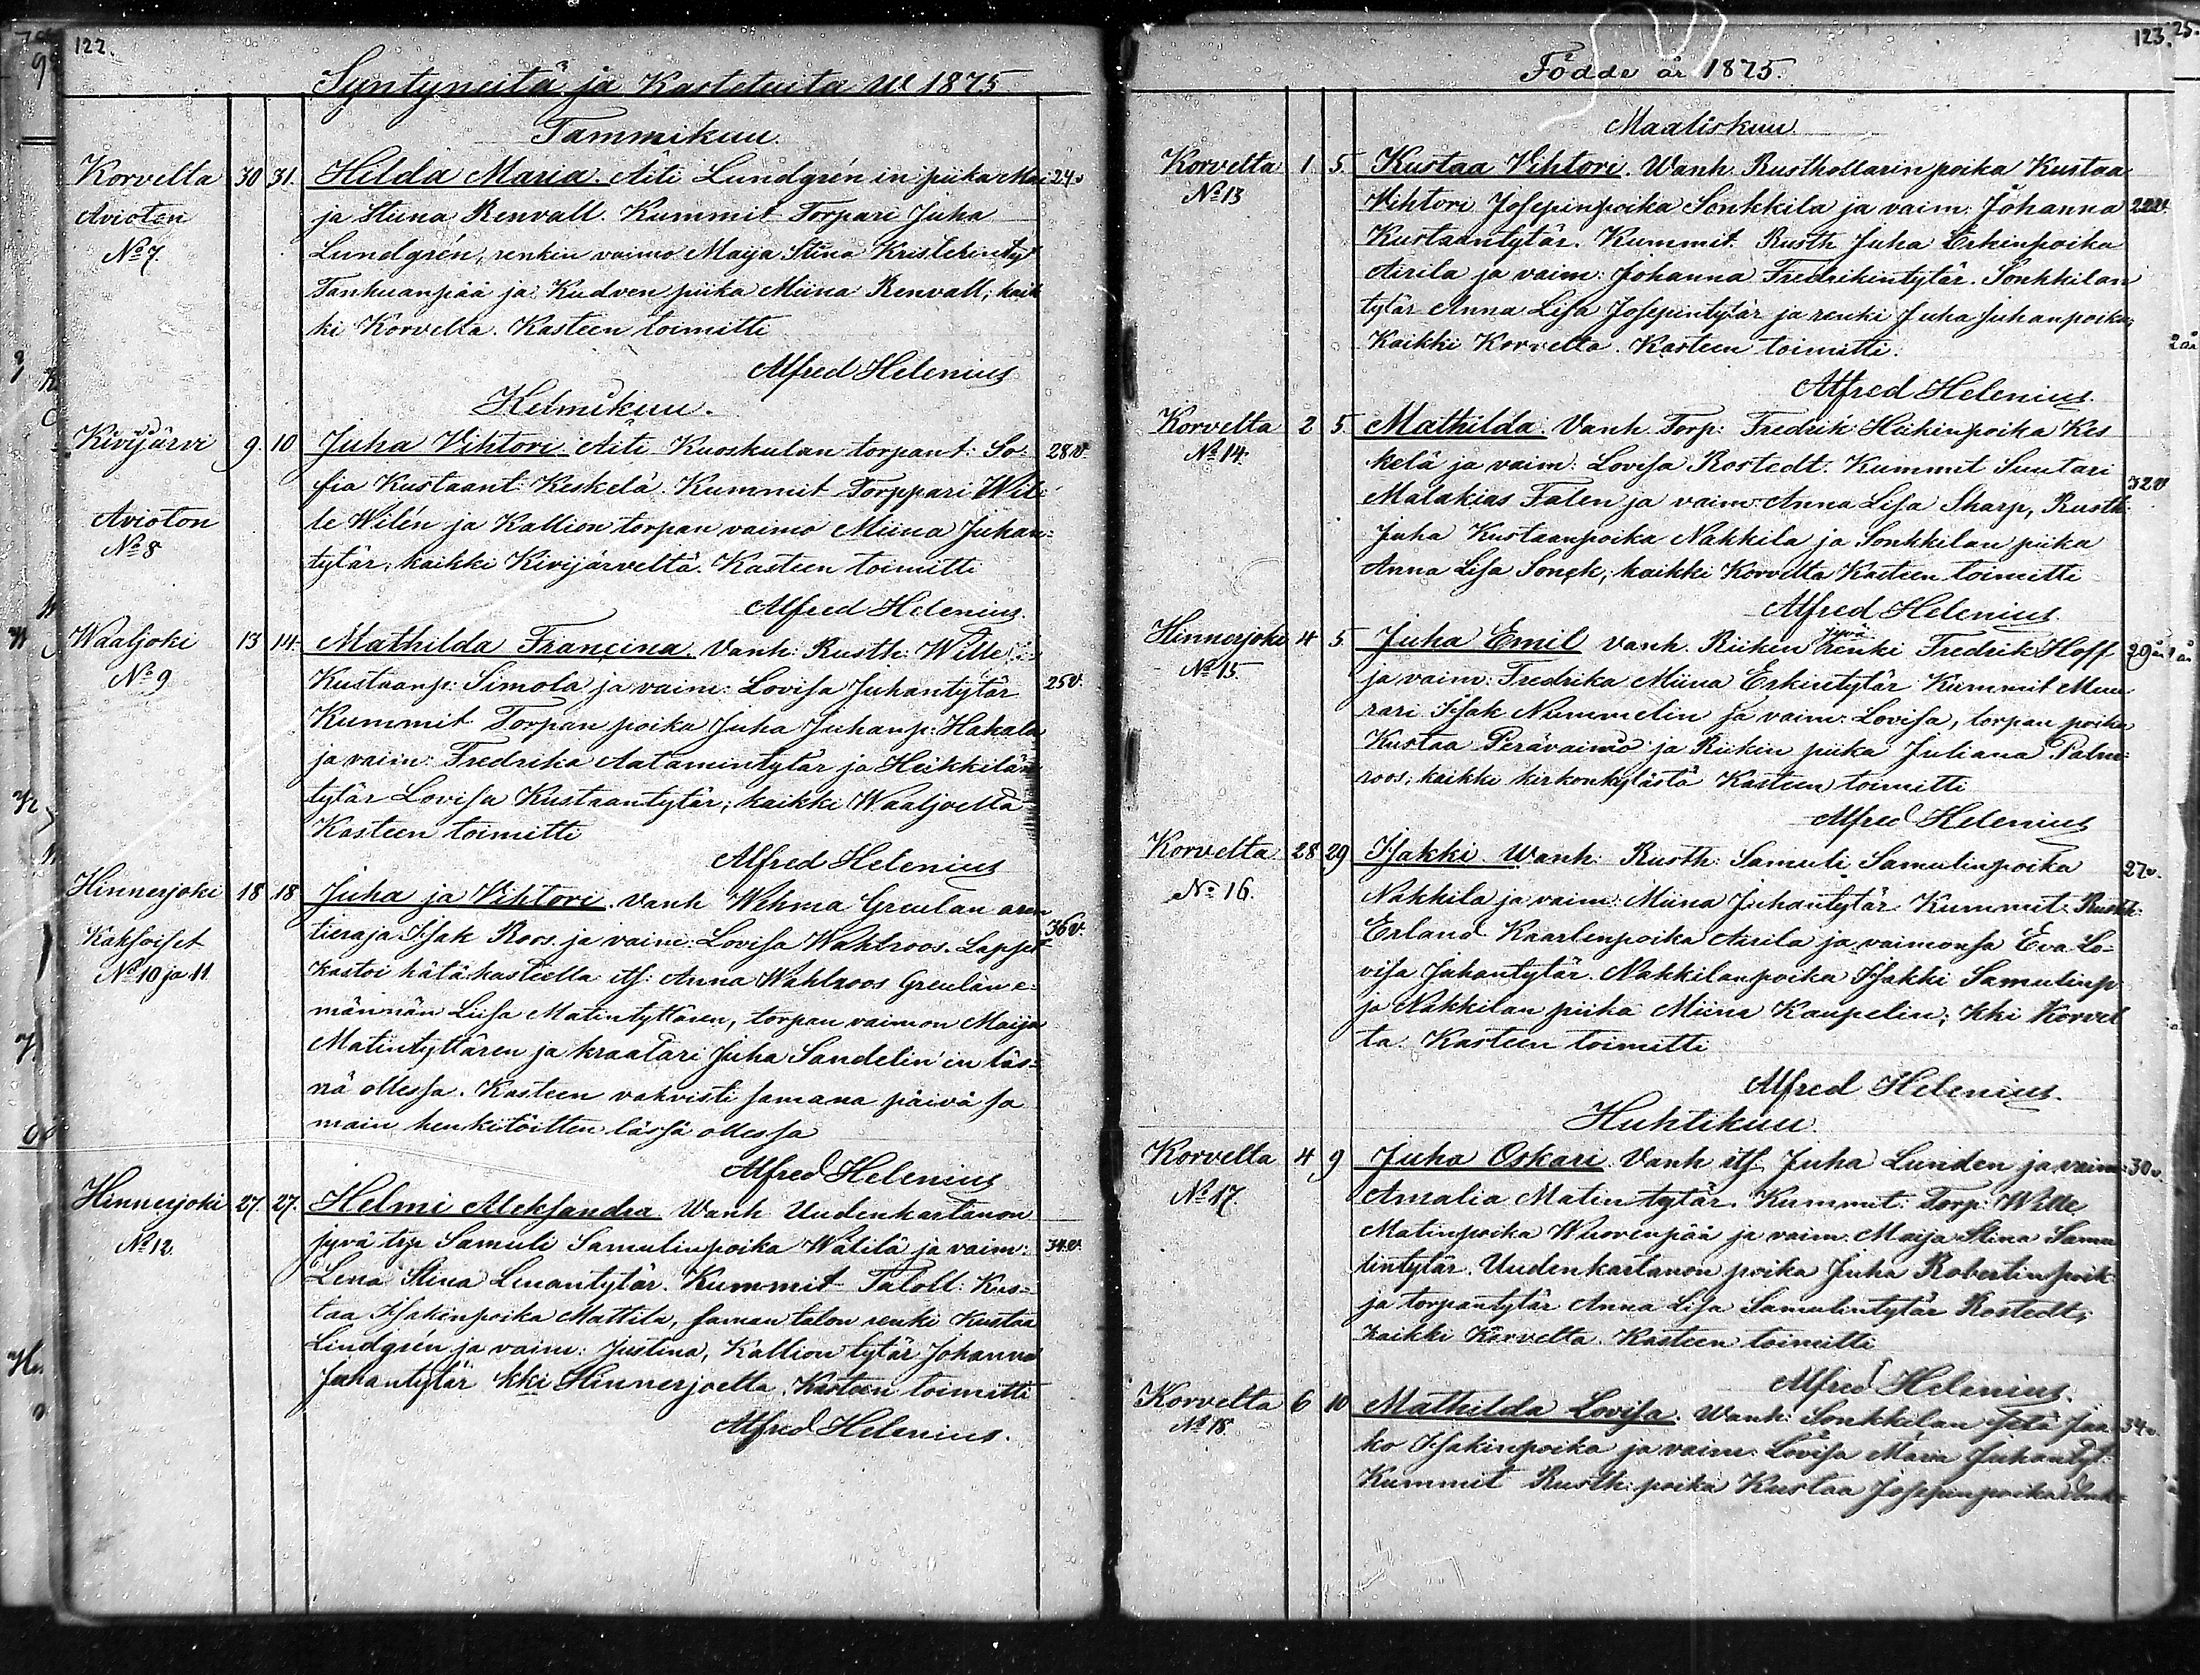 122.
Syntyneitä ja Kastetuita W 1875
Tammikuu.
Korvelta 30 31. Hilda Maria. Äiti Lundgrén'in piika Mai 24v
Avioton ja Stiina Renvall. Kummit Torpari Juha
No 7. Lundgrén, renkin vaimo Maija Stina Kristerintyt
Tanhuanpää ja Kudven piika Miina Renvall; kaik
ki Korvelta. Kasteen toimitti
Alfred Helenius
Helmikuu.
Kivijärvi 9. 10 Juha Vihtori Äiti Kuoskulan torpant: So- 28.v.
fia Kustaant: Keskelä. Kummit Torppari Wil
Avioton le Wilén ja Kallion torpan vaimo Miina Juhan-
No 8 tytär, kaikki Kivijärveltä. Kasteen toimitti
Alfred Helenius.
Waaljoki 13 14. Mathilda Francina. Vanh: Rusth: Wille
No 9 Kustaanp: Simola ja vaim: Lovisa Juhantytär 25v.
Kummit Torpan poika Juha Juhanp: Hakala
ja vaim: Fredrika Aatamintytär ja Heikkilän
tytär Lovisa Kustaantytär; kaikki Waaljoelta
Kasteen toimitti
Alfred Helenius
Hinnerjoki 18 18 Juha ja Vihtori. Vanh Wehma Greulan aren
Kaksoiset tieraja Isak Roos ja vaim: Lovisa Wahlroos. Lapset 36v.
No 10 ja 11. Kastoi hätäkasteella its: Anna Wahlroos Greulan e-
männän Liisa Matintyttären, torpan vaimon Maija
Matintyttären ja kraatari Juha Sandelin'en läs-
nä ollessa. Kasteen vahvisti samana päivä sa
main henkilöitten läsnä ollessa
Alfred Helenius
Hinnerjoki 27. 27. Helmi Aleksandra Wanh Uudenkartanon
No 12. jyvä trp Samuli Samulinpoika Wälilä ja vaim: 34.v.
Lena Stina Leenantytär. Kummit Taloll: Kus-
taa Isakinpoika Mattila, saman talon renki Kustaa
Lindgrén ja vaim: Justina, Kallion tytär Johanna
Juhantytär kki Hinnerjoelta. Kasteen toimitti
Alfred Helenius.
123.
Födde år 1875.
Maaliskuu.
Korvelta 1. 5. Kustaa Vihtori. Wanh. Rusthollarin poika Kustaa
No 13 Vihtori Josepinpoika Sonkkila ja vaim: Johanna 22v.
Kustaantytär. Kummit. Rusth Juha Erkinpoika
Airila ja vaim: Johanna Fredrikintytär. Sonkkilan
tytär Anna Lisa Josepintytär ja renki Juha Juhanpoika;
Kaikki Korvelta. Kasteen toimitti.
Alfred Helenius.
Korvelta 2 5. Mathilda. Vanh. Torp: Fredrik Heikinpoika Kes
No 14. kelä ja vaim: Lovisa Rostedt. Kummit Suutari
Malakias Falen ja vaim: Anna Lisa Sharp, Rusth: 32v
Juha Kustaanpoika Nakkila ja Sonkkilan piika
Anna Lisa Sonck; kaikki Korvelta Kasteen toimitti
Alfred Helenius.
Hinnerjoki 4 5. Juha Emil vanh. Riiken jyvä renki Fredrik Hoff 29 år
No 15 ja vaim: Fredrika Miina Erkintytär Kummit Muu
rari Isak Nummelin ja vaim: Lovisa, torpan poika
Kustaa Perävainio ja Riiken piika Juliana Palm-
roos; kaikki kirkonkylästä Kasteen toimitti
Alfred Helenius
Korvelta 28 29 Isakki. Wanh: Rusth: Samuli Samulinpoika 27v.
No 16. Nakkila ja vaim: Miina Juhantytär. Kummit: Rusth:
Erland Kaarlenpoika Airila ja vaimonsa Eva Lo-
visa Juhantytär. Nakkilanpoika Isakki Samulinp
ja Nakkilan piika Miina Kaupelin; kki Korvel
ta. Kasteen toimitti
Alfred Helenius.
Huhtikuu.
Korvelta 4 9 Juha Oskari. Vanh its Juha Lunden ja vaim: 30v.
No 17. Amalia Matin tytär. Kummit: Torp: Wille
Matinpoika Wuorenpää ja vaim: Maija Stina Samu
lintytär. Uudenkartanon poika Juha Robertinpoik
ja torpantytär Anna Lisa Samulintytär Rostedt;
kaikki Korvelta. Kasteen toimitti
Alfred Helenius.
Korvelta 6 10 Mathilda Lovisa. Wanh: Sonkkilan Jaa- 34v.
No 18. ko Isakinpoika ja vaim: Lovisa Maria Juhantyt:
Kummit Rusth: poika Kustaa Josepinpoika